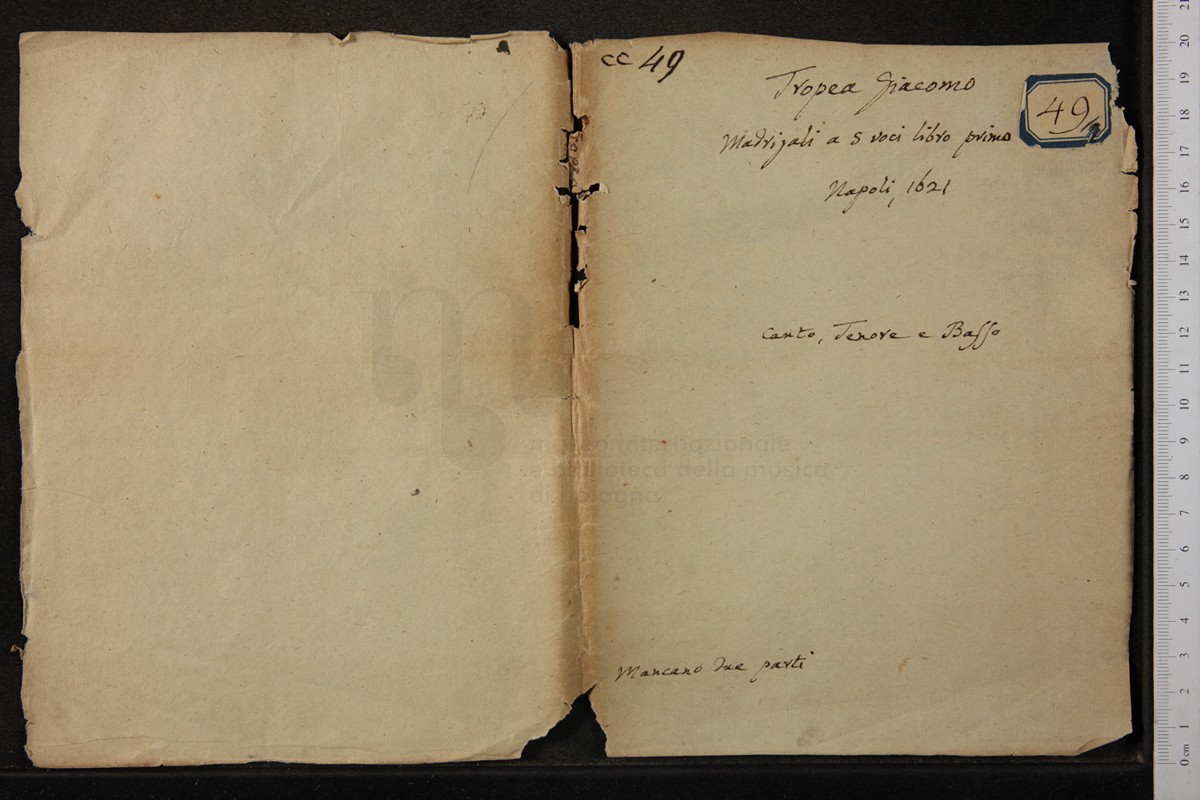 CC 49
Tropea Giacomo
49
Madrigali a 5 voci libro primo
Napoli, 1621
Canto, Tenore e Basso
museo internazionale
e biblioteca della musica
di bologna
Mancano due parti
21
20
19
18
17
16
15
14
13
12
11
10
9
8
7
6
5
4
3
2
1
0 cm